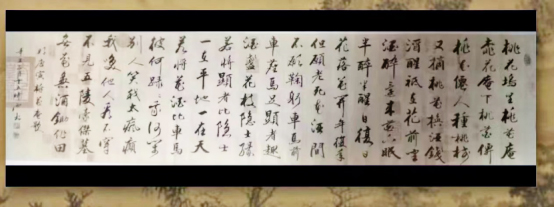 桃花塢里桃花庵
桃花庵下桃花僊
桃花僊人種桃樹
又摘桃花換酒錢
酒醒祗在花前坐
酒醉還來花下眠
半醉半醒日復日
花落花開年復年
但願老死花酒間
不願鞠躬車馬前
車塵馬足顯者趣
酒盞花枝隱士緣
若將顯者比隱士
一在平地一在天
若將花酒比車馬
彼何碌碌我何閒
別人笑我太瘋癲
我笑他人看不穿
不見五陵豪傑墓
無花無酒鋤作田